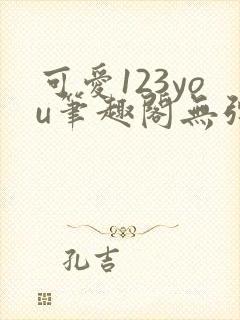 可愛123yo
u筆趣閣無弹
孔吉